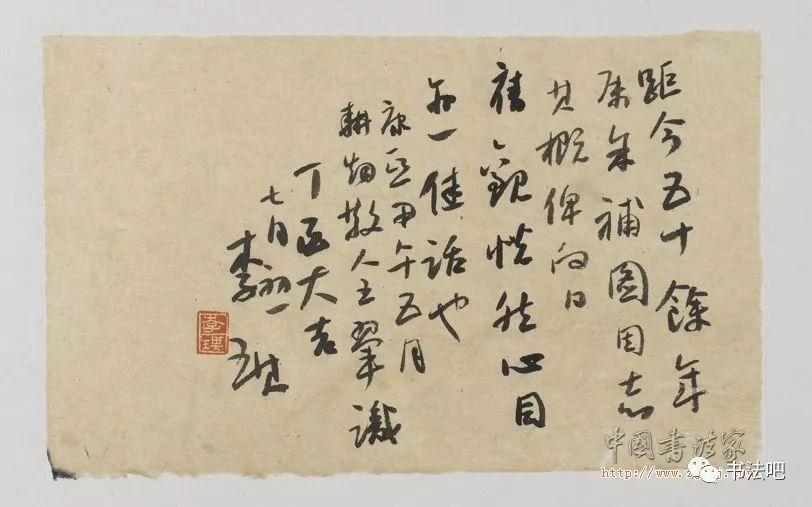 距今五十餘年
屬余補圖因志
其概俾向日
舊觀恍然心目
亦一佳話也
康熙甲午五月
耕烟散人王翬識
丁酉大吉
七月
李
瑛
李瑛
中國書法家
书法吧